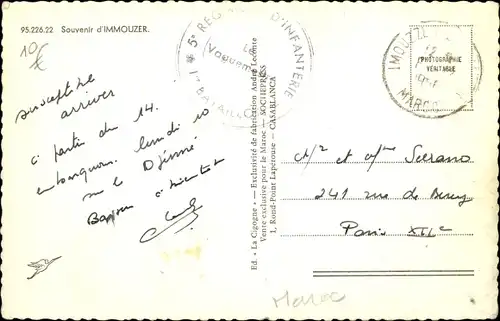 95.226.22 Souvenir d'IMMOUZER.
10€
5e REGIMENT D'INFANTERIE
Le
Vaguemestre
1er BATAILLON
IMOUZZER
MAROC
PHOTOGRAPHIE
VÉRITABLE
susceptible
arriver
à partir du 14.
embarquons lundi 10
sur le Djenné
à bientôt
Ed. « La Cigogne » — Exclusivité de fabrication André Leconte
Vente exclusive pour le Maroc — SOCHEPRESS
1, Rond-Point Lapérouse — CASABLANCA
et Serrano
241 rue de Bercy
Paris XIIe
Maroc